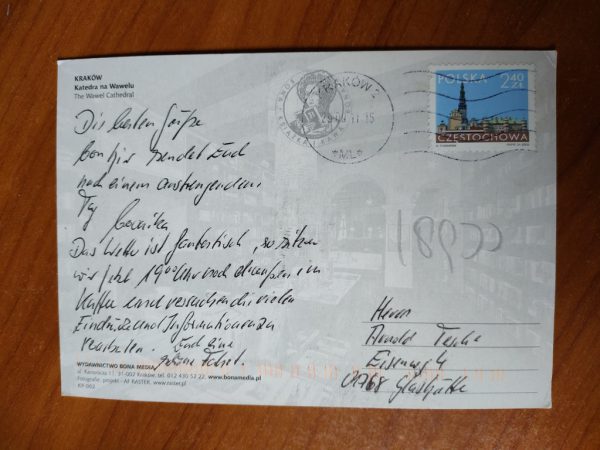 KRAKÓW
Katedra na Wawelu
The Wawel Cathedral
KRAKÓW 2
POLSKA 2,40 ZŁ
CZĘSTOCHOWA
Die besten Grüße
von hier sendet Euch
nach einem anstrengenden
Tag
Das Wetter ist fantastisch, so sitzen
wir jetzt 19 00 Uhr noch draußen im
Kaffee und versuchen die vielen
Eindrücke und Informationen zu
verarbeiten.
Herrn
Arnold
Eisenweg 4
01768 Glashütte
WYDAWNICTWO BONA MEDIA
ul. Kanonicza 11, 31-002 Kraków, tel. 012 430 52 22, www.bonamedia.pl
Fotografie, projekt - AF RASTER, www.raster.pl
KP-002